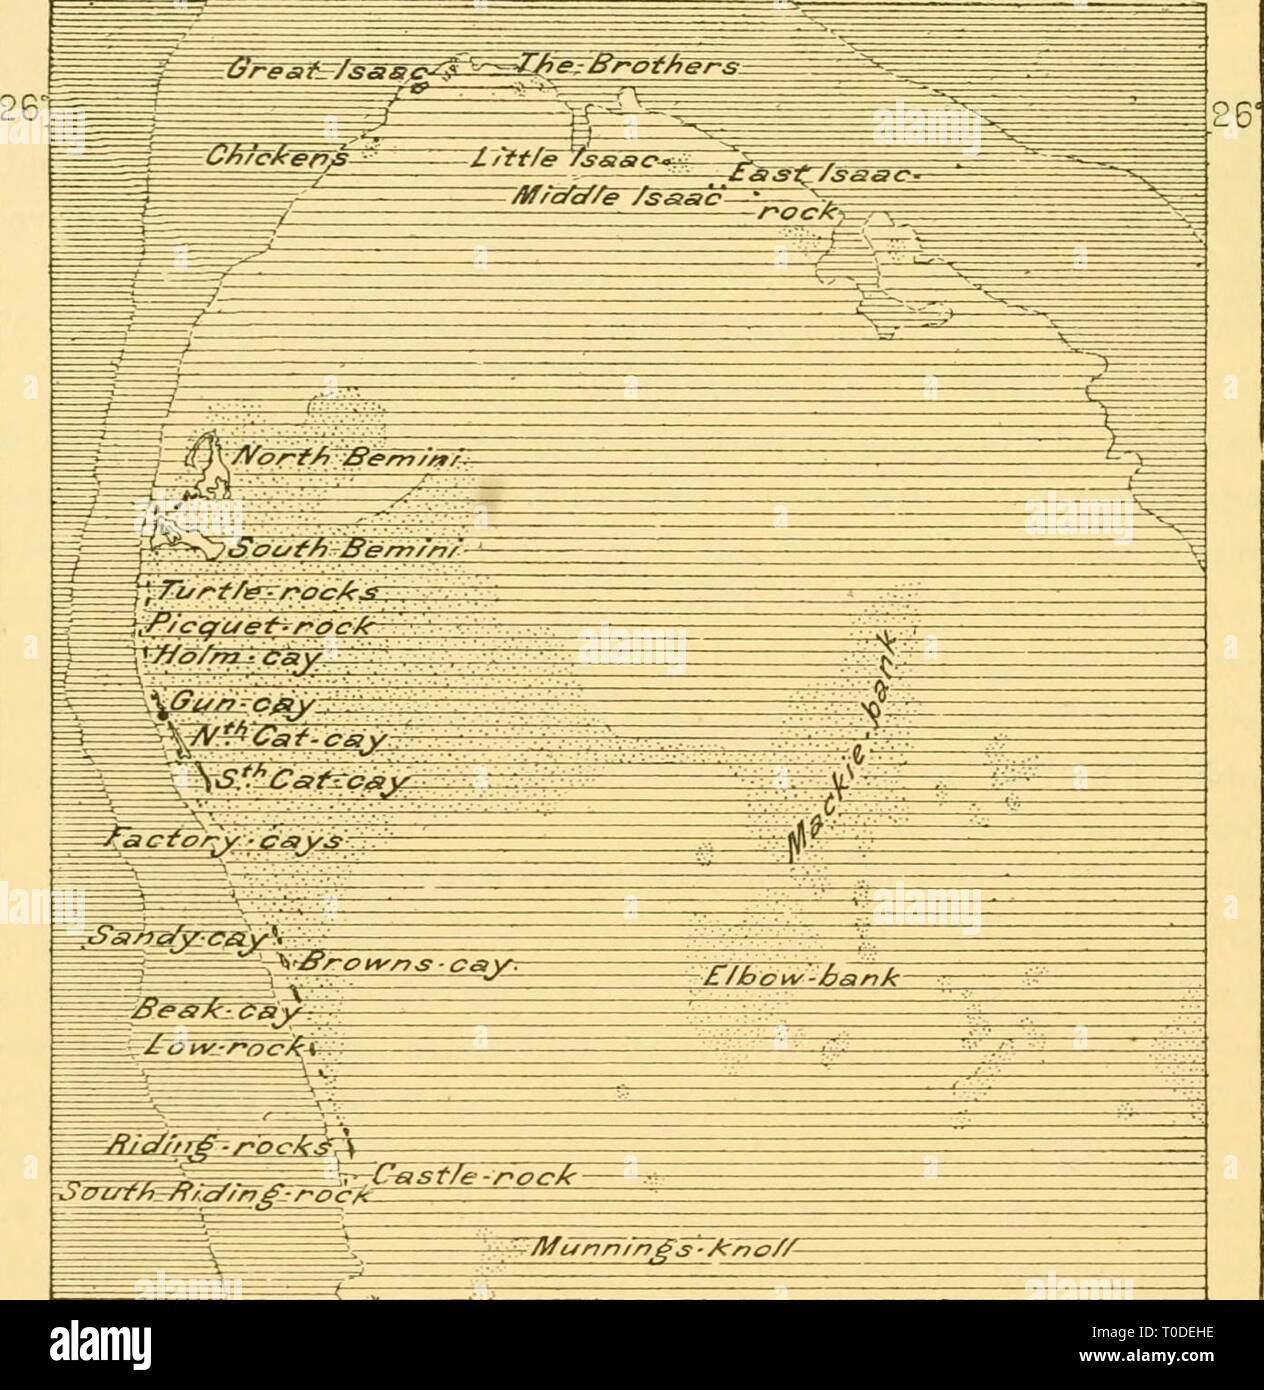 Great-Isaac
The-Brothers
26°
26°
Chickens
Little Isaac
East Isaac
Middle Isaac
rock
North Bemini
South-Bemini
Turtle-rocks
Picquet-rock
Holm-cay
Gun-cay
Nth Cat-cay
Sth Cat-cay
Mackie-bank
Factory-cays
Sandy-cay
Browns-cay
Elbow-bank
Beak-cay
Low-rock
Riding-rocks
Castle-rock
South-Riding-rock
Munnings-knoll
alamy
Image ID: T0DEHE
www.alamy.com